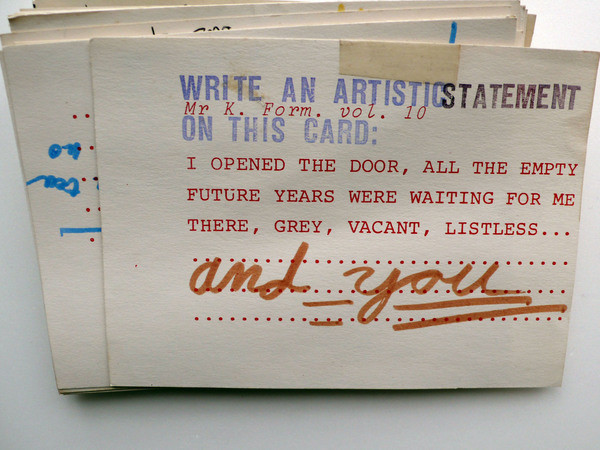 WRITE AN ARTISTIC STATEMENT
Mr K. Form. vol. 10
ON THIS CARD:
I OPENED THE DOOR, ALL THE EMPTY
FUTURE YEARS WERE WAITING FOR ME
THERE, GREY, VACANT, LISTLESS...
and you